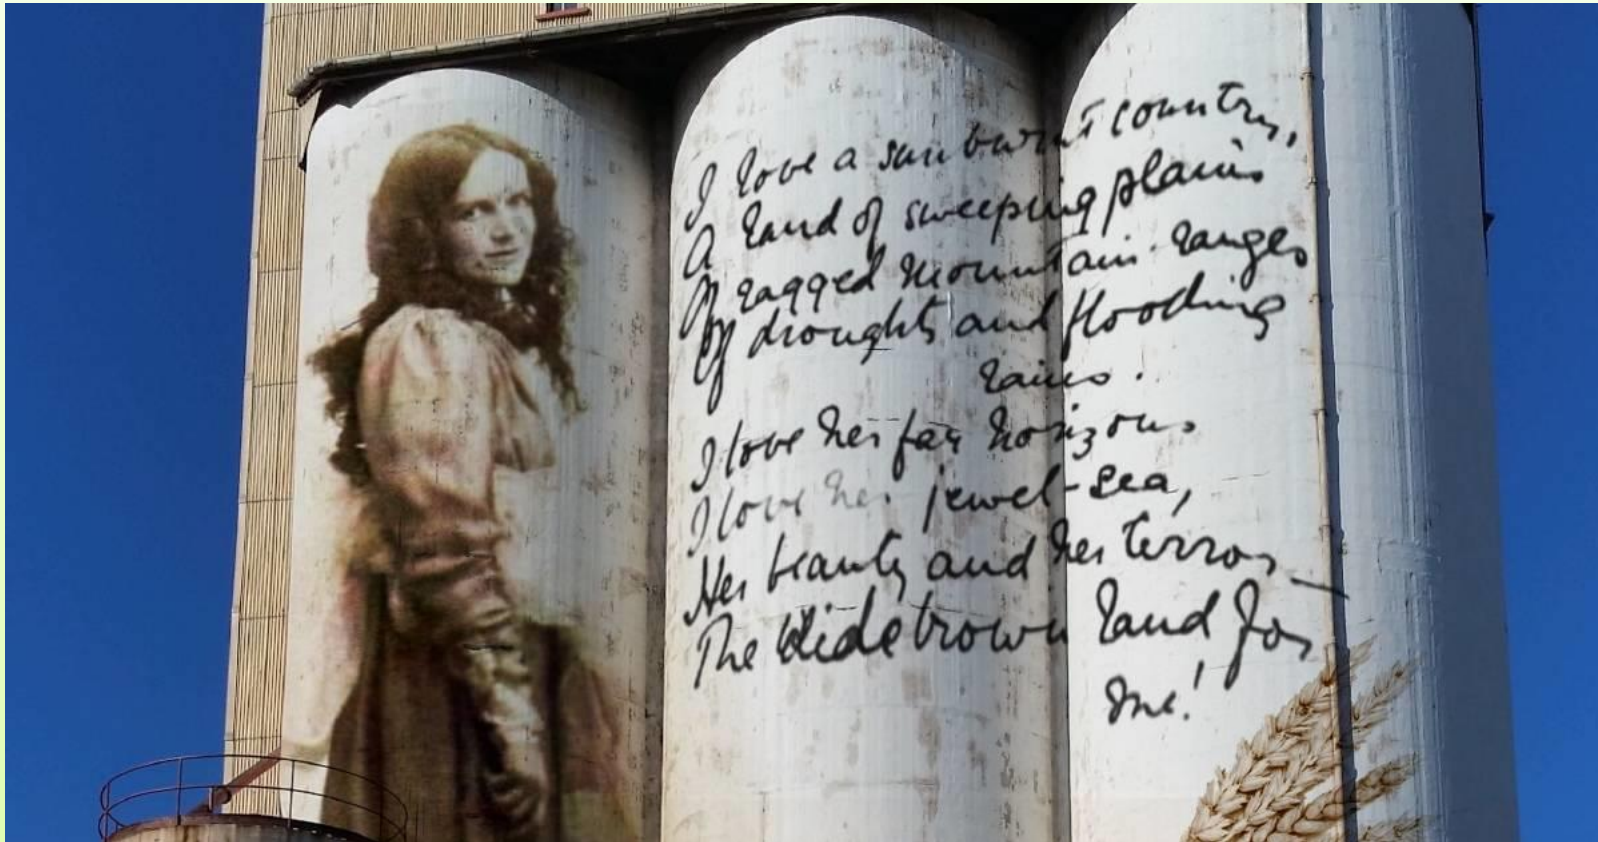 I love a sunburnt country,
A land of sweeping plains
Of ragged mountain ranges
Of droughts and flooding
rains.
I love her far horizons
I love her jewel-sea,
Her beauty and her terror –
The Wide brown land for
me!